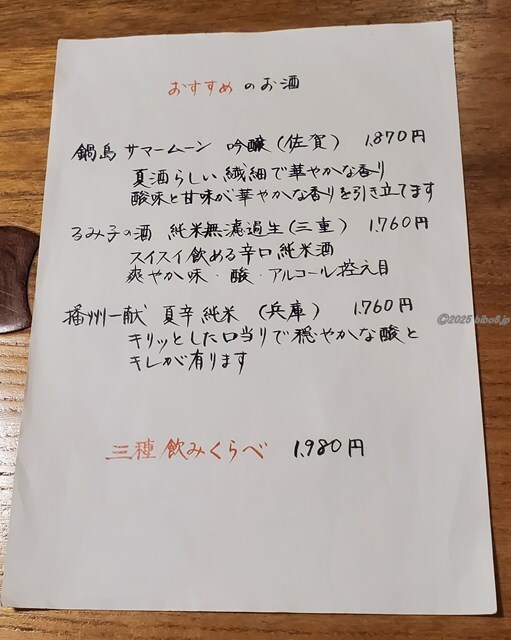 おすすめのお酒
鍋島 サマームーン 吟醸(佐賀) 1,870円
夏酒らしい繊細で華やかな香り
酸味と甘味が華やかな香りを引き立てます
るみ子の酒 純米無濾過生(三重) 1,760円
スイスイ飲める辛口純米酒
爽やか味・酸・アルコール控え目
播州一献 夏辛純米 (兵庫) 1,760円
キリッとした口当りで穏やかな酸と
キレが有ります
三種飲みくらべ 1,980円
©2025 bibo6.jp